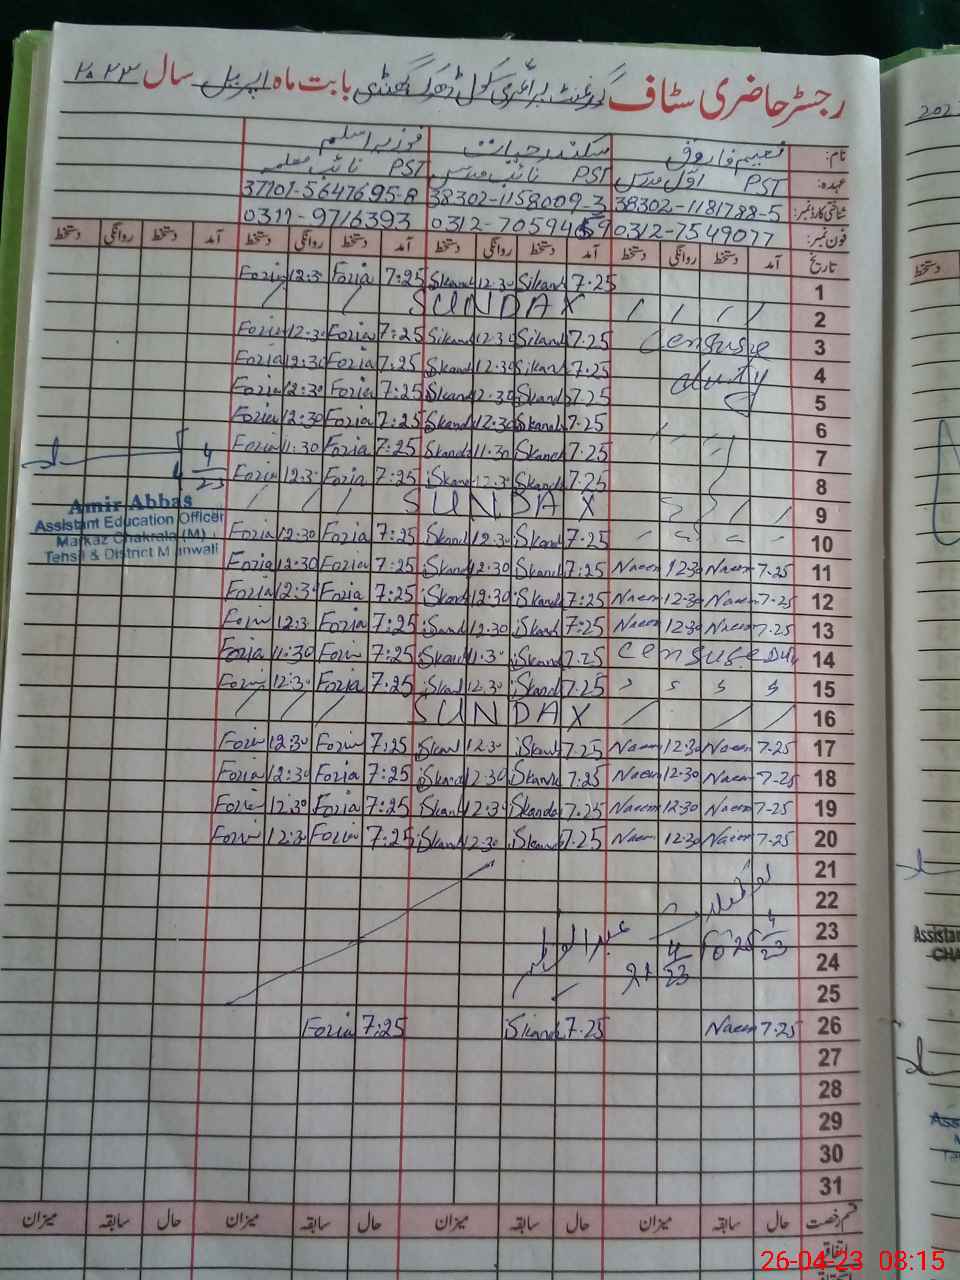 رجسٹر حاضری سٹاف گورنمنٹ پرائمری سکول بابت ماہ اپریل سال ۲۰۲۳
نام: نعیم فاروق سکندر حیات فوزیہ اسلم
عہدہ: PST اول مدرس PST نائب مدرس PST نائب معلمہ
شناختی کارڈ نمبر: 38302-1181788-5 38302-1158009-3 37101-5647695-8
فون نمبر: 0312-7549077 0311-9716393
تاریخ آمد دستخط روانگی دستخط آمد دستخط روانگی دستخط آمد دستخط روانگی دستخط آمد دستخط روانگی دستخط
1 7.25 Sikand 12.30 Skand 7:25 Fozia 12:3 Fozia
2 SUNDAX
3 Censuse 7.25 Sikand 12.30 Sikand 7:25 Fozia 12:3 Fozia
4 duty 7.25 Sikand 12.30 Skand 7:25 Fozia 12:30 Fozia
5 7.25 Skand 12.30 Skand 7:25 Fozia 12:30 Fozia
6 7.25 Skand 12.30 Skand 7:25 Fozia 12:30 Fozia
7 7.25 Skand 11.30 Skand 7:25 Fozia 11:30 Fozia
8 7.25 Skand 12.3 Skand 7:25 Fozia 12:3 Fozia
4
23
9 SUNDAX
Amir Abbas
Assistant Education Officer
Markaz Chakrala (M)
Tehsil & District Mianwali
10 7.25 Skand 12.30 Skand 7:25 Fozia 12:30 Fozia
11 7.25 Naeem 12.30 Naeem 7:25 Skand 12.30 Skand 7:25 Fozia 12:30 Fozia
12 7.25 Naeem 12.30 Naeem 7:25 Skand 12.30 Skand 7:25 Fozia 12:3 Fozia
13 7.25 Naeem 12.30 Naeem 7:25 Skand 12.30 Sand 7:25 Fozia 12:3 Fozia
14 Censuse Duty 7.25 Skand 11.3 Skand 7:25 Fozia 11:30 Fozia
15 7.25 Skand 12.3 Skand 7:25 Fozia 12:3 Fozia
16 SUNDAX
17 7.25 Naeem 12.30 Naeem 7.25 Skand 12.3 Skand 7:25 Fozia 12:30 Fozia
18 7.25 Naeem 12.30 Naeem 7.25 Skand 12.30 Skand 7:25 Fozia 12:30 Fozia
19 7.25 Naeem 12.30 Naeem 7.25 Skanda 12.30 Skand 7:25 Fozia 12.30 Fozia
20 7.25 Naeem 12.30 Naeem 7.25 Skand 12.30 Skand 7:25 Fozia 12:30 Fozia
21
22 تعطیلات
23 عید الفطر
24 21 4/23 to 25 4/23
25
26 7.25 Naeem 7.25 Skand 7:25 Fozia
27
28
29
30
31
قسم رخصت حال سابقہ میزان حال سابقہ میزان حال سابقہ میزان حال سابقہ میزان
اتفاقیہ
26-04-23 08:15